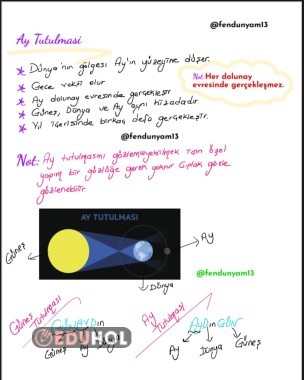 @fendunyam13
Ay Tutulması
* Dünya'nın gölgesi Ay'ın yüzeyine düşer.
* Gece vakti olur
* Ay dolunay evresinde gerçekleşir
* Güneş, Dünya ve Ay aynı hizadadır
* Yıl içerisinde birkaç defa gerçekleşir.
Not: Her dolunay
evresinde gerçekleşmez.
@fendunyam13
Not: Ay tutulmasını gözlemleyebilmek için özel
yapım bir gözlüğe gerek yoktur. Çıplak gözle
gözlenebilir.
AY TUTULMASI
Güneş
Ay
Dünya
@fendunyam13
Güneş Tutulması
GÜNAYDın
Güneş Ay
EDUHOL
Ay Tutulması
AyDın GÜN
Ay Dünya Güneş